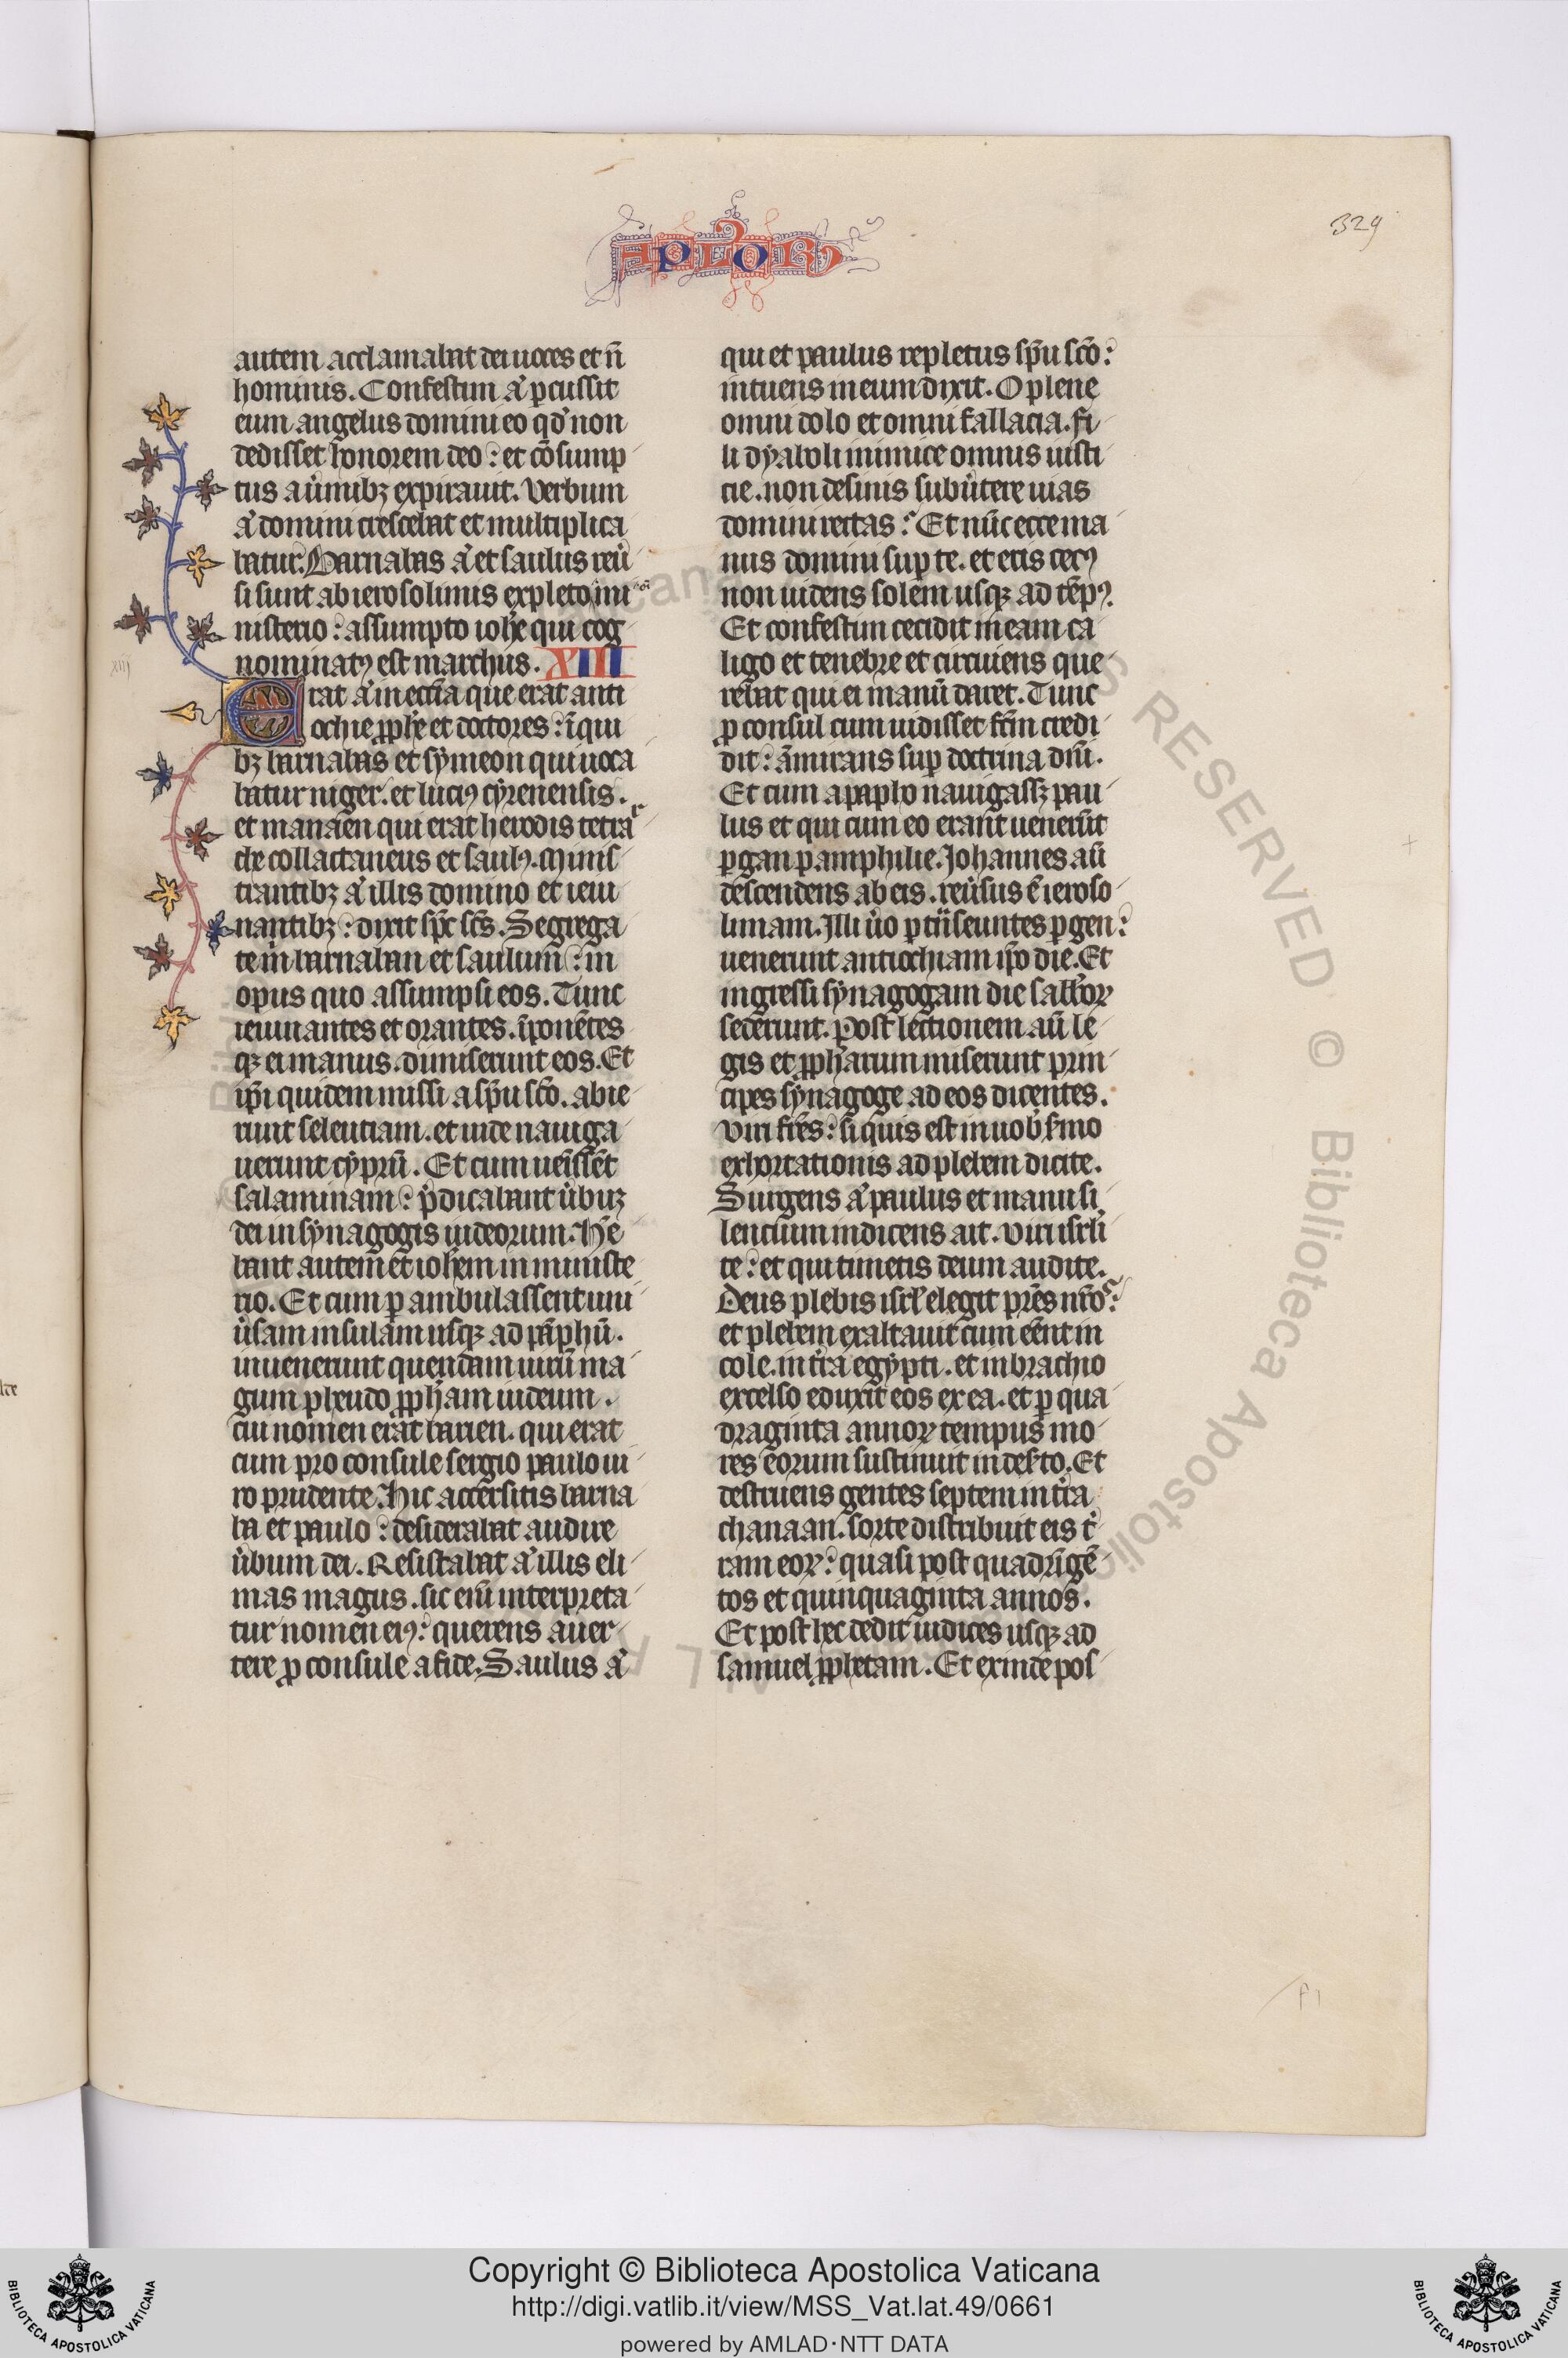 APLOR
329
autem acclamabat dei uoces et n̄
hominis. Confestim aͣ ꝑcussit
eum angelus domini eo qd̓ non
dedisset honorem deo: et cōsump
tus a ůmibꝫ expirauit. Verbum
aͣ domini crescebat et multiplica
batur. Barnabas aͣ et saulus reů
si sunt ab ierosolimis expleto mi
nisterio: assumpto ioħe qui cog
nominatꝰ est marchus. XIII
Erat aͣ in ecc̄ia que erat anti
ochie ꝓph̄e et doctores: ī qui
bꝫ barnabas et symeon qui uoca
batur niger. et luciꝰ cyrenensis.
et manaen qui erat herodis tetraͬ
che collactaneus et saulꝰ. Minis
trantibꝫ aͣ illis domino et ieiu
nantibꝫ: dixit sp̄c sc̄s. Segrega
te m̓ barnaban et saulum: in
opus quo assumpsi eos. Tunc
ieiunantes et orantes. īponētes
qꝫ ei manus. dimiserunt eos. Et
ip̄i quidem missi a sp̄u sc̄o. abie
runt seleuciam. et inde nauiga
uerunt cyprū. Et cum uenissēt
salaminam: p̓dicabant ůbuꝫ
dei in synagogis iudeorum. Hē
bant autem et ioh̄em in ministe
rio. Et cum ꝑ ambulassent uni
ůsam insulam usqꝫ ad paphū.
inuenerunt quendam uirū ma
gum pseudo ꝓph̄am iudeum.
cui nomen erat barieu. qui erat
cum pro consule sergio paulo ui
ro prudente. Hic accersitis barna
ba et paulo: desiderabat audire
ůbum dei. Resistabat aͣ illis eli
mas magus. sic enī interpreta
tur nomen eiꝰ: querens auer
tere ꝓ consule a fide. Saulus aͣ
qui et paulus repletus sp̄u sc̄o:
intuens in eum dixit. O plene
omni dolo et omni fallacia. fi
li dyaboli inimice omnis iusti
cie. non desinis subůtere uias
domini rectas: Et nūc ecce ma
nus domini suꝑ te. et eris cecꝰ
non uidens solem usqꝫ ad tēpꝰ.
Et confestim cecidit in eam ca
ligo et tenebre et circuiens que
rebat qui ei manū daret. Tunc
ꝓ consul cum uidisset fc̄m credi
dit: āmirans suꝑ doctrina dn̄i.
Et cum a paplo nauigassꝫ pau
lus et qui cum eo erant uenerūt
ꝑgan pamphilie. Johannes au̅
descendens ab eis. reůsus ē ieroso
limam. Illi ůo ꝑ tn̄seuntes ꝑgen:
uenerunt antiochiam ip̄o die. Et
ingressi synagogam die sabb̓oꝝ
sederunt. Post lectionem au̅ le
gis et ꝓph̄arum miserunt prin
cipes synagoge ad eos dicentes.
Viri fr̄es: si quis est in uob̓ s̓mo
exhortationis ad plebem dicite.
Surgens aͣ paulus et manu si
lentium indicens ait. Viri isrl̓i
te: et qui timetis deum audite.
Deus plebis isrl̓ elegit pr̄es nr̄oˢ:
et plebem exaltauit cum eēnt in
cole. in t̓ra egypti. et in brachio
excelso eduxit eos ex ea. et ꝑ qua
draginta annoꝝ tempus mo
res eorum sustinuit in des̓to. Et
destruens gentes septem in t̓ra
chanaan. sorte distribuit eis t̓
ram eoꝝ: quasi post quadrīgē
tos et quinquaginta annos.
Et post hec dedit iudices usqꝫ ad
samuel ꝓphetam. Et exinde pos
Copyright © Biblioteca Apostolica Vaticana
http://digi.vatlib.it/view/MSS_Vat.lat.49/0661
powered by AMLAD·NTT DATA
BIBLIOTECA APOSTOLICA VATICANA
BIBLIOTECA APOSTOLICA VATICANA